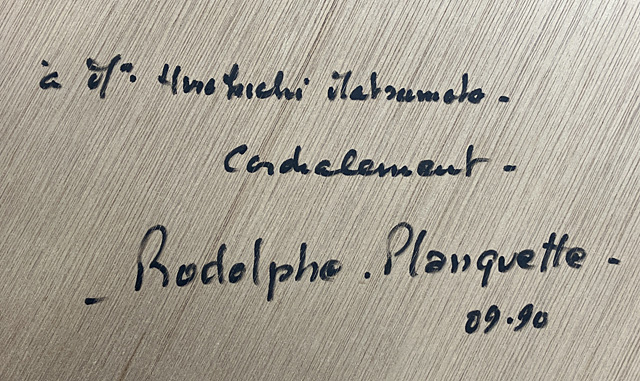 à Mr. Hirokichi Matsumoto -
Cordialement -
- Rodolphe . Planquette -
09.90